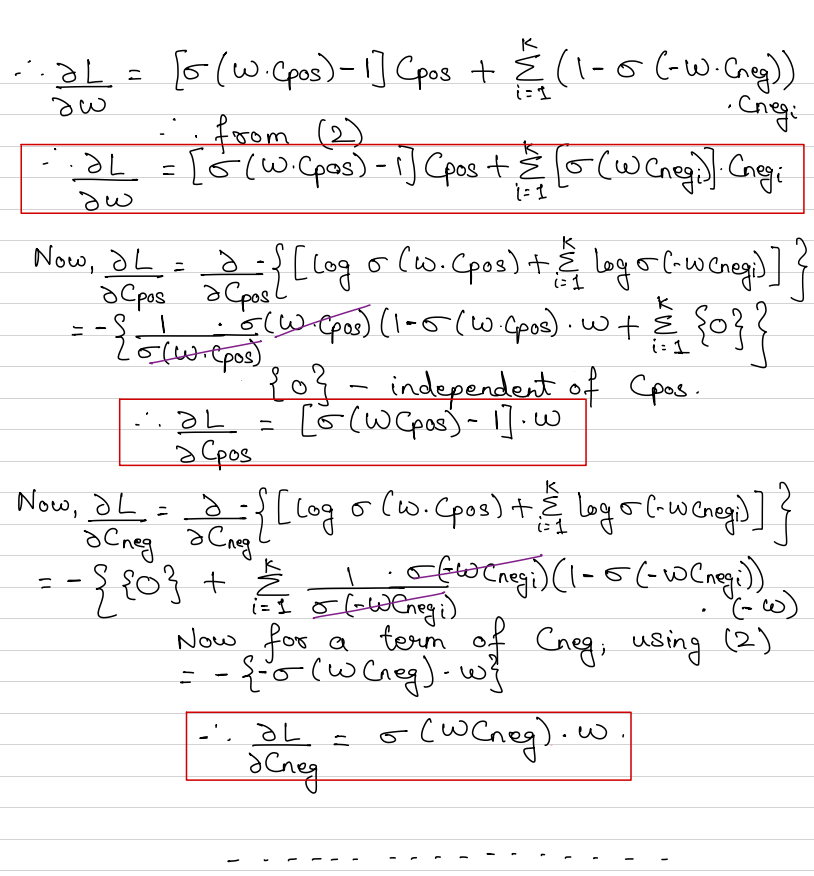 ∴ ∂L/∂w = [σ(w·Cpos)-1] Cpos + Σ_{i=1}^{K} (1-σ(-w·Cneg)) ·Cnegi
∵ from (2)
∴ ∂L/∂w = [σ(w·Cpos)-1] Cpos + Σ_{i=1}^{K} [σ(wCnegi)]·Cnegi
Now, ∂L/∂Cpos = ∂/∂Cpos -{[log σ(w·Cpos) + Σ_{i=1}^{K} log σ(-wCnegi)]}
= -{1/σ(w·Cpos) · σ(w·Cpos) (1-σ(w·Cpos)·w + Σ_{i=1}^{K} {0}}
{0} - independent of Cpos.
∴ ∂L/∂Cpos = [σ(wCpos)-1]·w
Now, ∂L/∂Cneg = ∂/∂Cneg -{[log σ(w·Cpos) + Σ_{i=1}^{K} log σ(-wCnegi)]}
= -{{0} + Σ_{i=1}^{K} 1/σ(-wCnegi) · σ(-wCnegi)(1-σ(-wCnegi)) · (-w)
Now for a term of Cneg, using (2)
= -{-σ(wCneg)·w}
∴ ∂L/∂Cneg = σ(wCneg)·w.